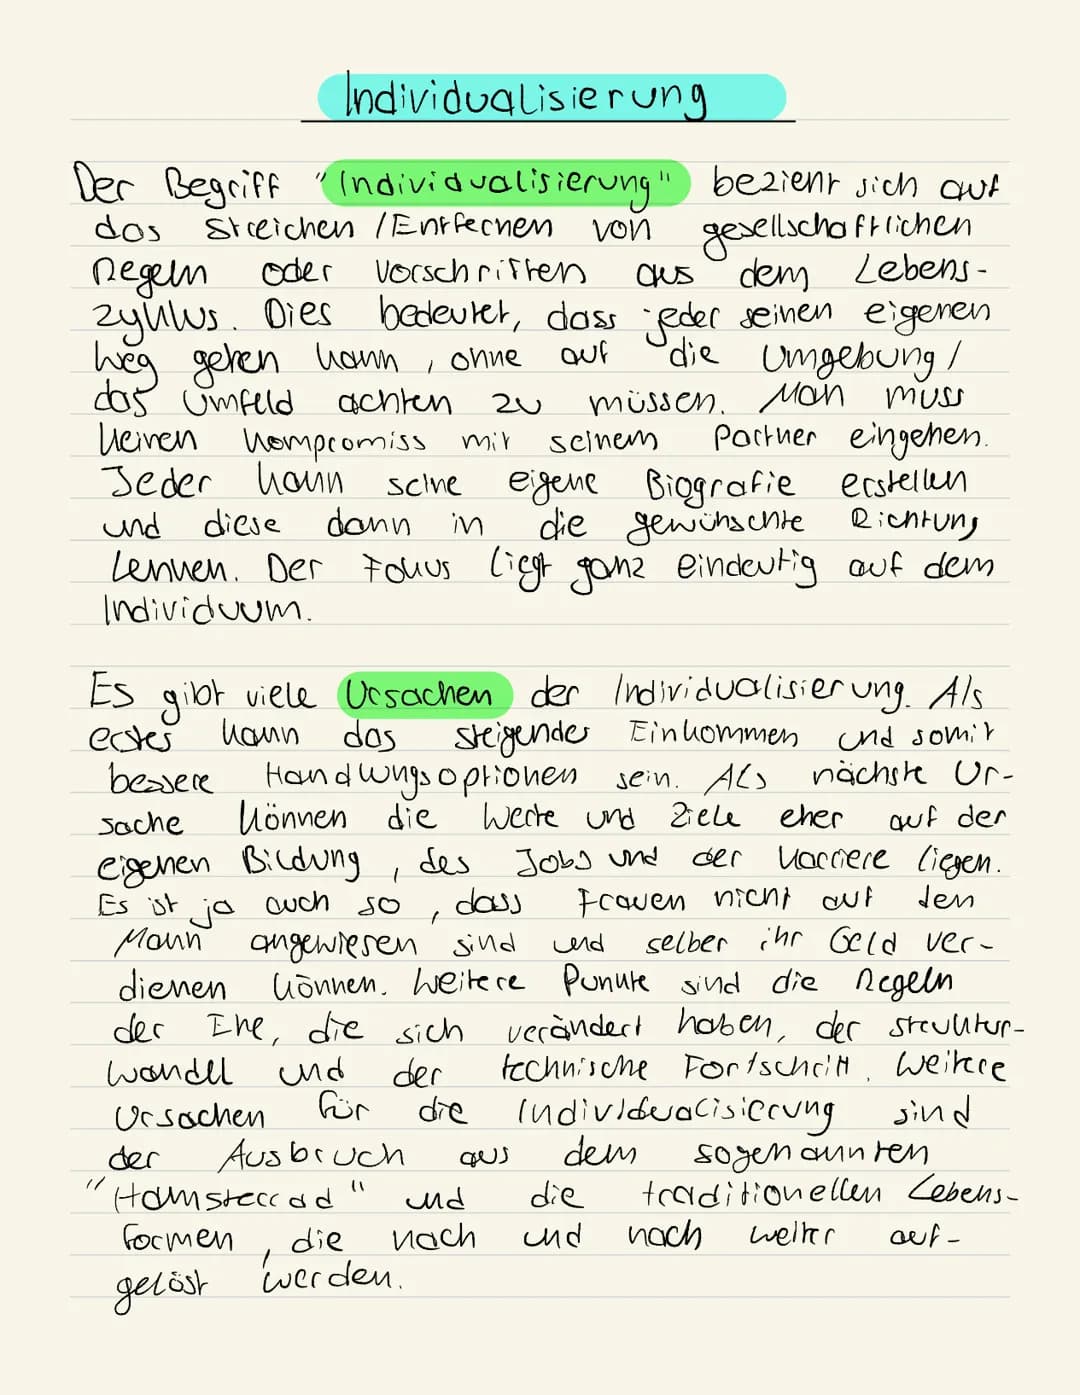 Individualisierung
Der Begriff "Individualisierung" bezieht sich auf
das Streichen / Entfernen von gesellschaftlichen
Regeln oder Vorschriften aus dem Lebens-
zyklus. Dies bedeutet, dass jeder seinen eigenen
Weg gehen kann, ohne auf die Umgebung /
das Umfeld achten zu müssen. Man muss
keinen Kompromiss mit seinem Partner eingehen.
Jeder kann seine eigene Biografie erstellen
und diese dann in die gewünschte Richtung
Lenken. Der Fokus liegt ganz eindeutig auf dem
Individuum.
Es gibt viele Ursachen der Individualisierung. Als
erstes kann das steigender Einkommen und somit
bessere Handlungsoptionen sein. Als nächste Ur-
sache können die Werte und Ziele eher auf der
eigenen Bildung, des Jobs und der Karriere liegen.
Es ist ja auch so, dass Frauen nicht auf den
Mann angewiesen sind und selber ihr Geld ver-
dienen können. Weitere Punkte sind die Regeln
der Ehe, die sich verändert haben, der Struktur-
wandel und der technische Fortschritt. Weitere
Ursachen für die Individualisierung sind
der Ausbruch aus dem sogenannten
"Hamsterrad" und die traditionellen Lebens-
formen, die nach und nach weiter auf-
gelöst werden.